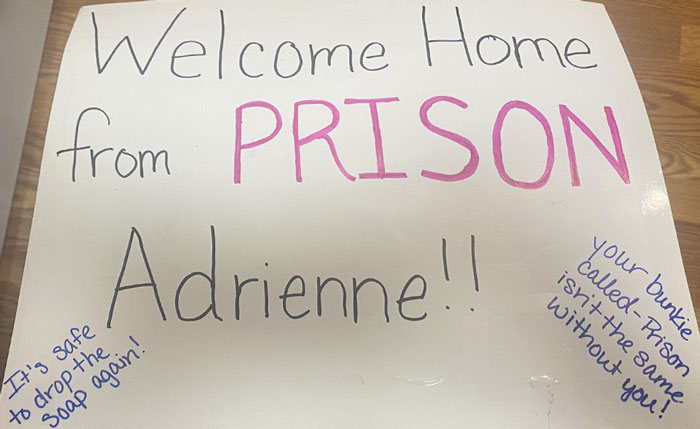 Welcome Home
from PRISON
Adrienne!!
It's safe
to drop the
soap again!
your bunkie
called-Prison
isn't the same
without you!